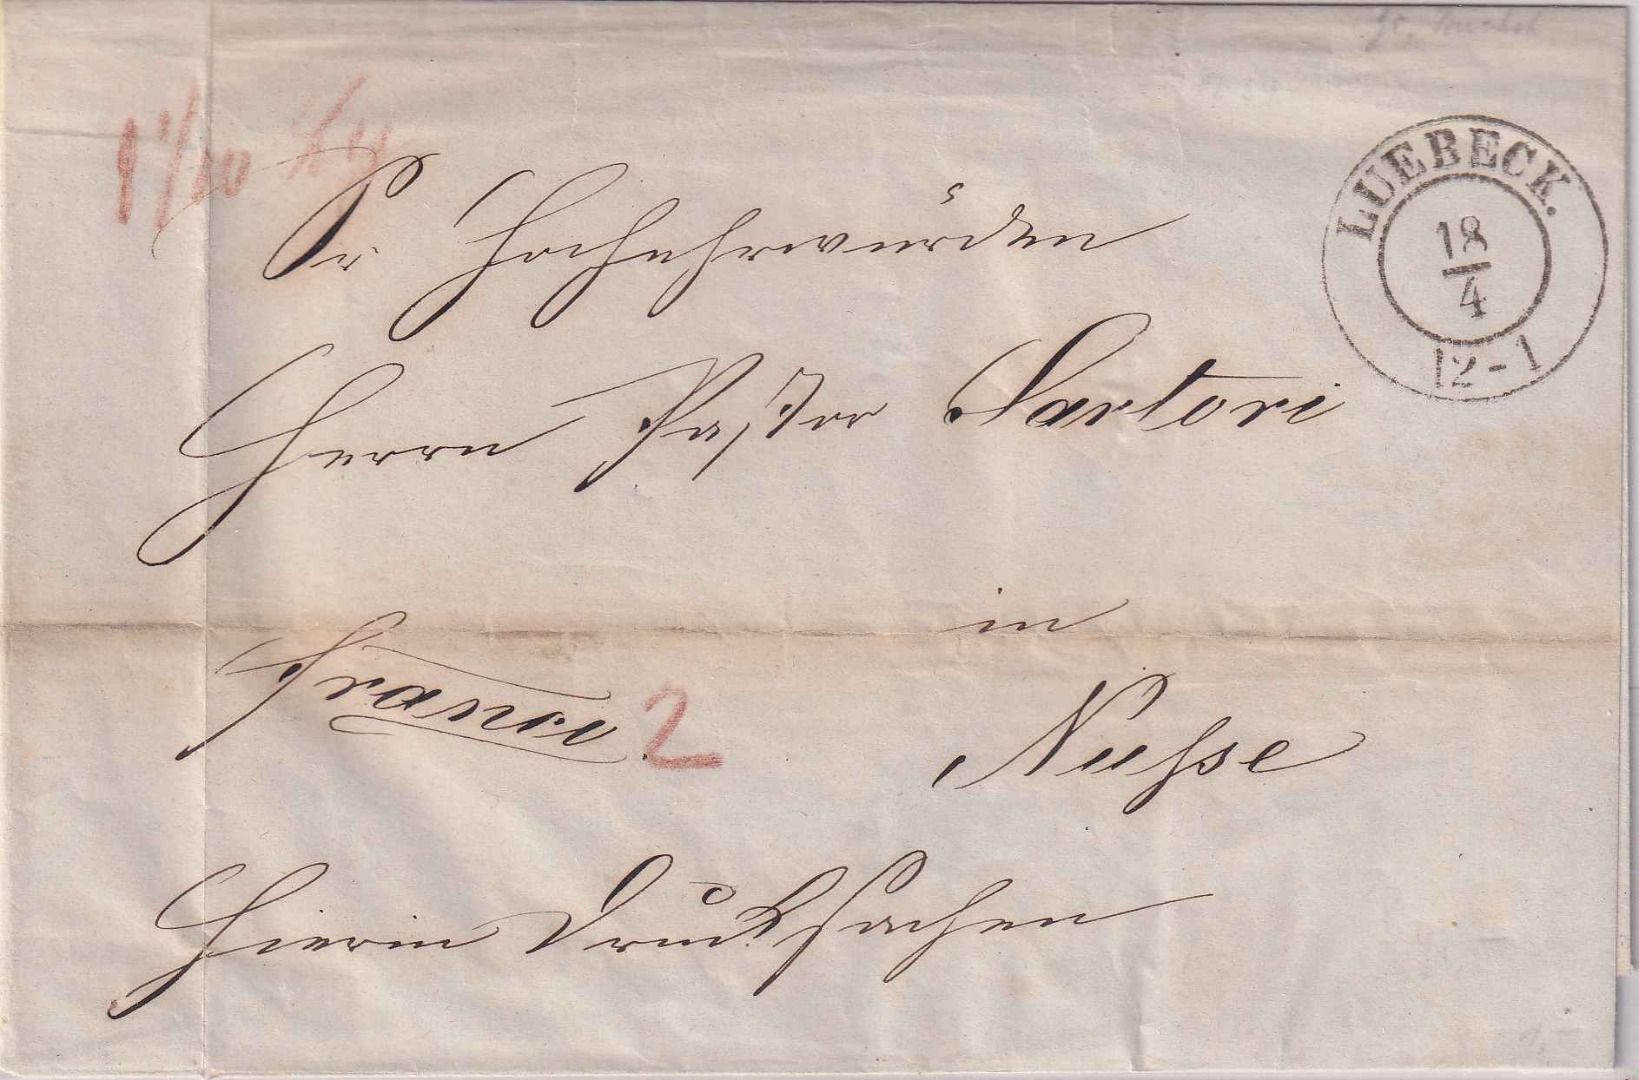 LUEBECK.
18
4
12-1
1 1/10
Sr Hochehrwürden
Herrn Pastor Sartori
in
Franco 2
Nusse
Hierin Drucksachen